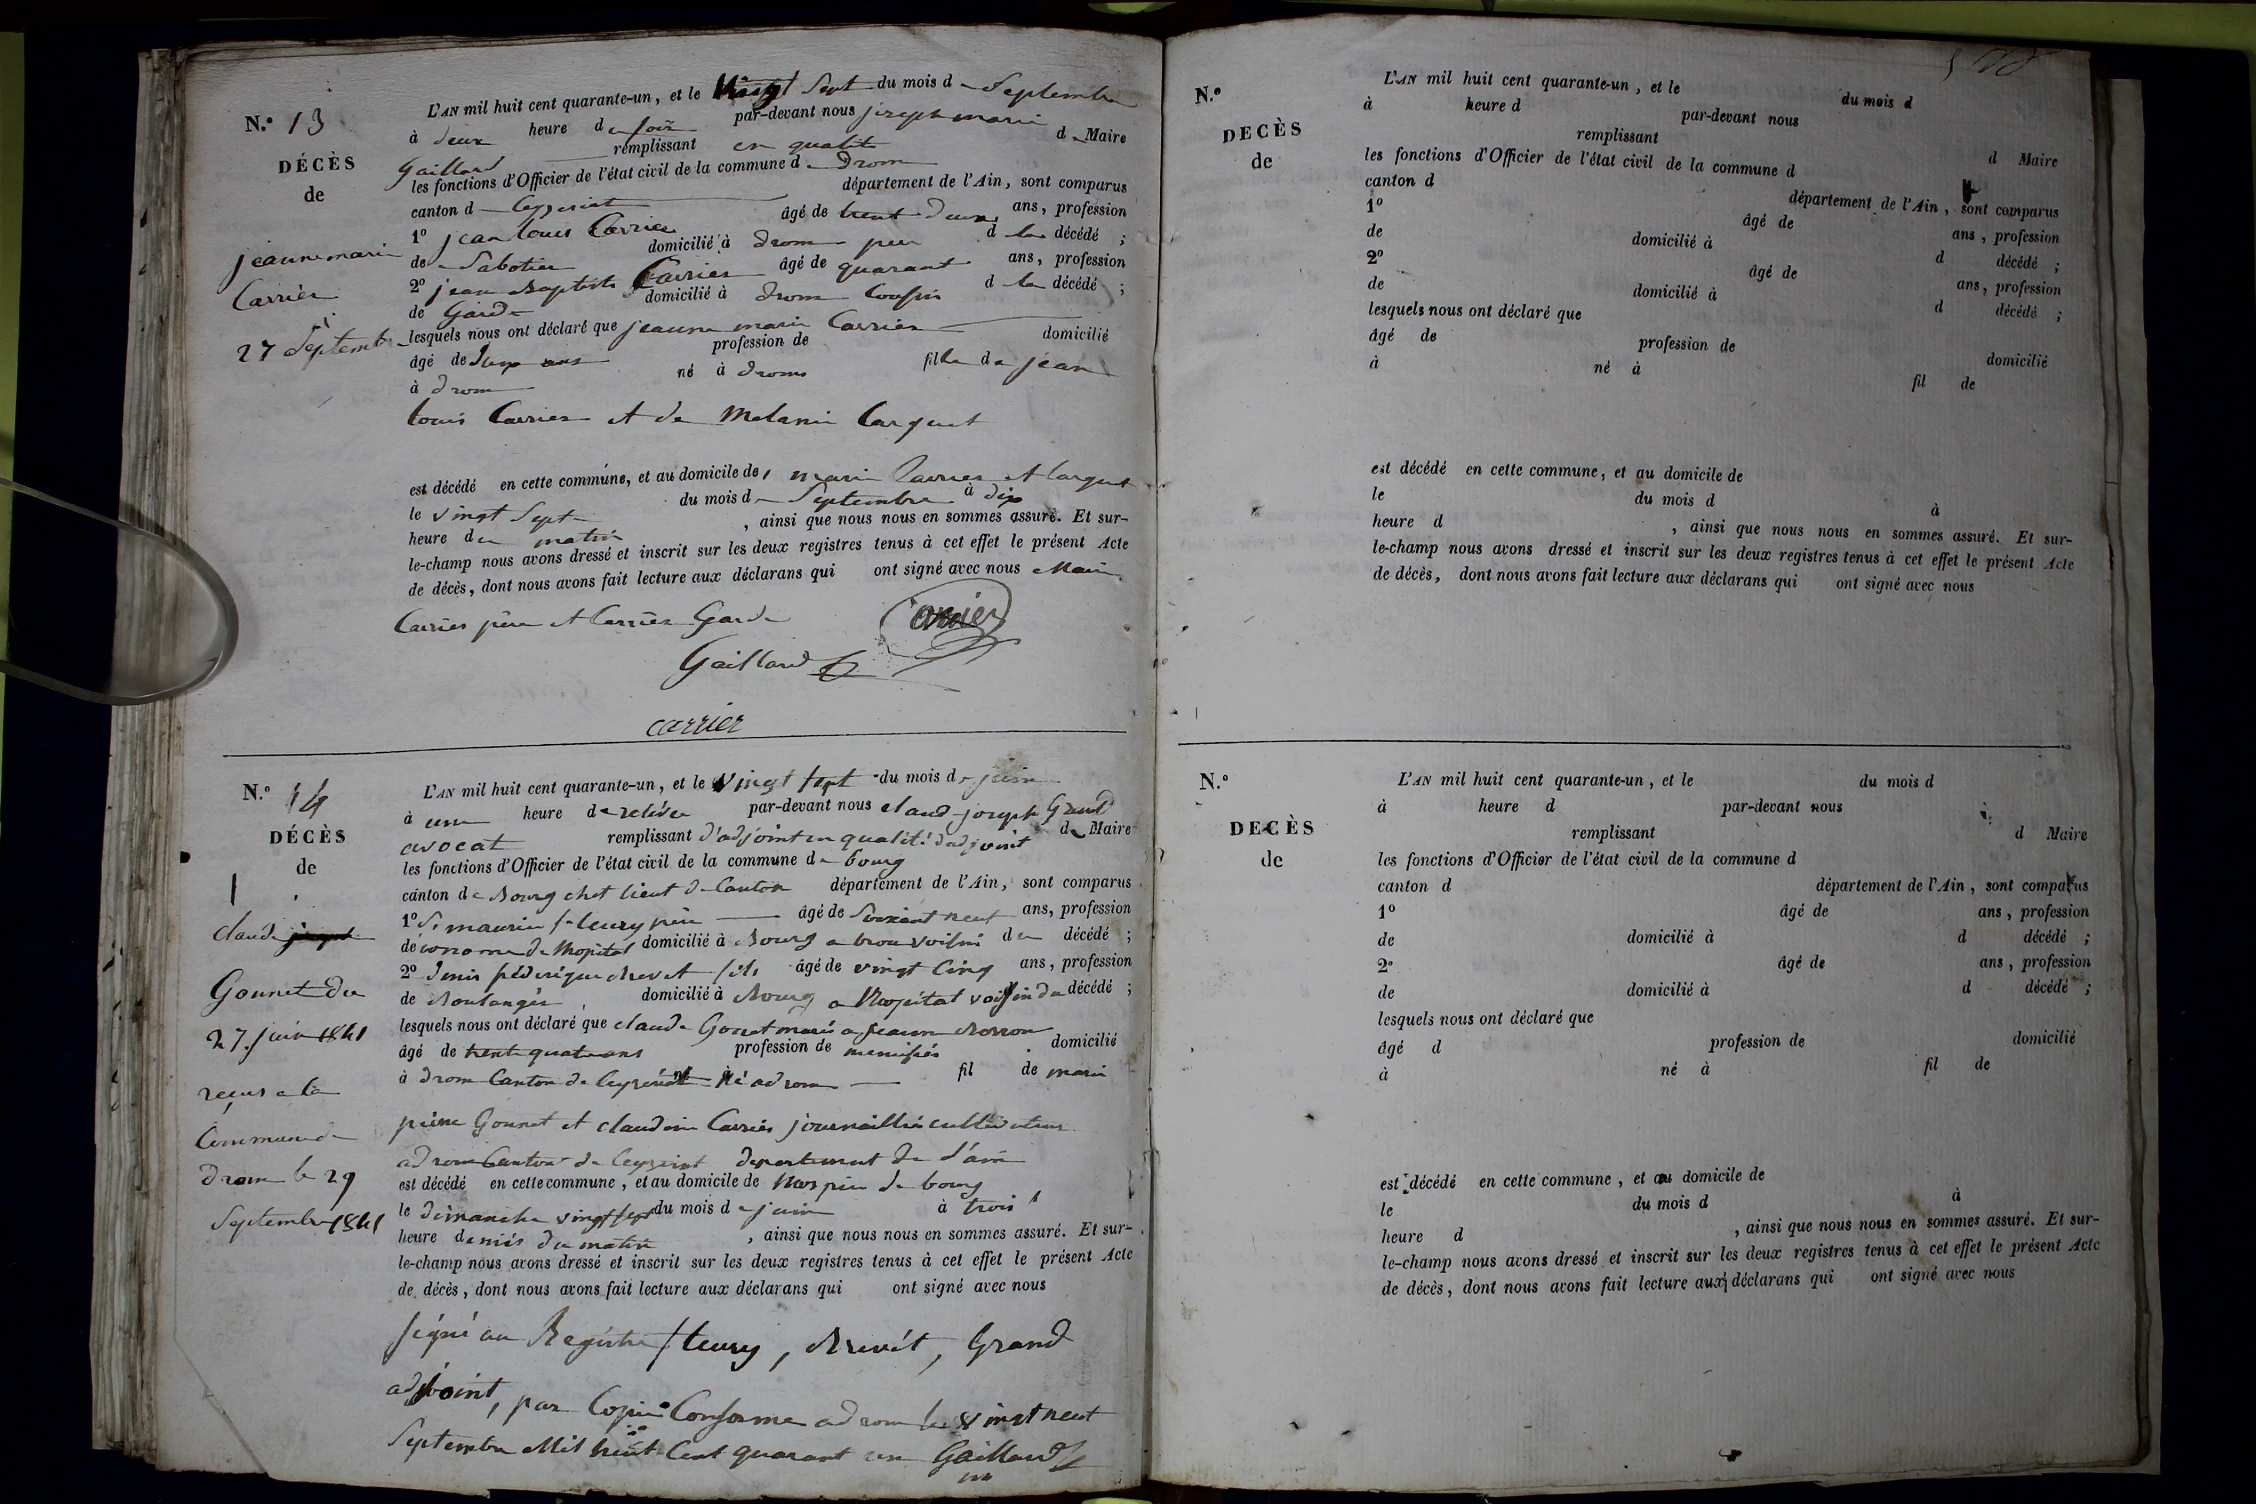 N.º 13
DÉCÈS
de
jeanne marie
Carrier
27 Septembre
L'AN mil huit cent quarante-un, et le Vingt Sept du mois de Septembre
à deux heure du soir par-devant nous joseph marie
Gaillard remplissant en qualité de Maire
les fonctions d'Officier de l'état civil de la commune de Drom
canton de Ceyzeriat département de l'Ain, sont comparus
1º jean louis Carrier âgé de trent deux ans, profession
de Sabotier domicilié à drom per d la décédé ;
2º jean Baptiste Carrier âgé de quarant ans, profession
de Garde domicilié à drom Cousin d la décédé ;
lesquels nous ont déclaré que jeanne marie Carrier
âgé de deux ans profession de domicilié
à drom né à drom fille de jean
louis Carrier et de Melanie Carquet
est décédé en cette commune, et au domicile de marie Carrier et Carquet
le vingt Sept du mois de Septembre à dix
heure du matin , ainsi que nous nous en sommes assuré. Et sur-
le-champ nous avons dressé et inscrit sur les deux registres tenus à cet effet le présent Acte
de décès, dont nous avons fait lecture aux déclarans qui ont signé avec nous Maire
Carrier père et Carrier Garde
Carrier
Gaillard
carrier
N.º 14
DÉCÈS
de
claude joseph
Gonnet du
27 juin 1841
reçus a la
Commune de
drom le 29
Septembre 1841
L'AN mil huit cent quarante-un, et le vingt sept du mois de juin
à une heure de relévée par-devant nous claude joseph Grand
avocat remplissant d'adjoint en qualité d'adjoint d Maire
les fonctions d'Officier de l'état civil de la commune de bourg
canton de Bourg chef lieut de Canton département de l'Ain, sont comparus
1º S. maurin fleury père âgé de Soixant neuf ans, profession
de économe de l'hopital domicilié à Bourg a brou voisin du décédé ;
2º denis féderique Brevet fils âgé de vingt Cinq ans, profession
de Boulanger domicilié à Bourg a l'hopital voisin du décédé ;
lesquels nous ont déclaré que claude Gonnet marié a jeanne
âgé de trente quatre ans profession de menuisié domicilié
à drom Canton de Ceyzériat né a drom fil de marie
pierre Gonnet et claudine Carrier journaillié cultivateur
a drom Canton de Ceyzeriat departement de l'ain
est décédé en cette commune, et au domicile de l'hospice de bourg
le dimanche vingt sept du mois de juin à trois
heure demiés du matin , ainsi que nous nous en sommes assuré. Et sur-
le-champ nous avons dressé et inscrit sur les deux registres tenus à cet effet le présent Acte
de décès, dont nous avons fait lecture aux déclarans qui ont signé avec nous
signé au Registre fleury, Brevét, Grand
adjoint, par Copie Conforme a drom le vingt neuf
Septembre Mil huit Cent quarant un Gaillard
N.º
DECÈS
de
L'AN mil huit cent quarante-un, et le du mois d
à heure d par-devant nous
remplissant d Maire
les fonctions d'Officier de l'état civil de la commune d
canton d département de l'Ain, sont comparus
1º âgé de ans, profession
de domicilié à d décédé ;
2º âgé de ans, profession
de domicilié à d décédé ;
lesquels nous ont déclaré que
âgé de profession de domicilié
à né à fil de
est décédé en cette commune, et au domicile de
le du mois d à
heure d , ainsi que nous nous en sommes assuré. Et sur-
le-champ nous avons dressé et inscrit sur les deux registres tenus à cet effet le présent Acte
de décès, dont nous avons fait lecture aux déclarans qui ont signé avec nous
N.º
DECÈS
de
L'AN mil huit cent quarante-un, et le du mois d
à heure d par-devant nous
remplissant d Maire
les fonctions d'Officier de l'état civil de la commune d
canton d département de l'Ain, sont comparus
1º âgé de ans, profession
de domicilié à d décédé ;
2º âgé de ans, profession
de domicilié à d décédé ;
lesquels nous ont déclaré que
âgé d profession de domicilié
à né à fil de
est décédé en cette commune, et au domicile de
le du mois d à
heure d , ainsi que nous nous en sommes assuré. Et sur-
le-champ nous avons dressé et inscrit sur les deux registres tenus à cet effet le présent Acte
de décès, dont nous avons fait lecture aux déclarans qui ont signé avec nous